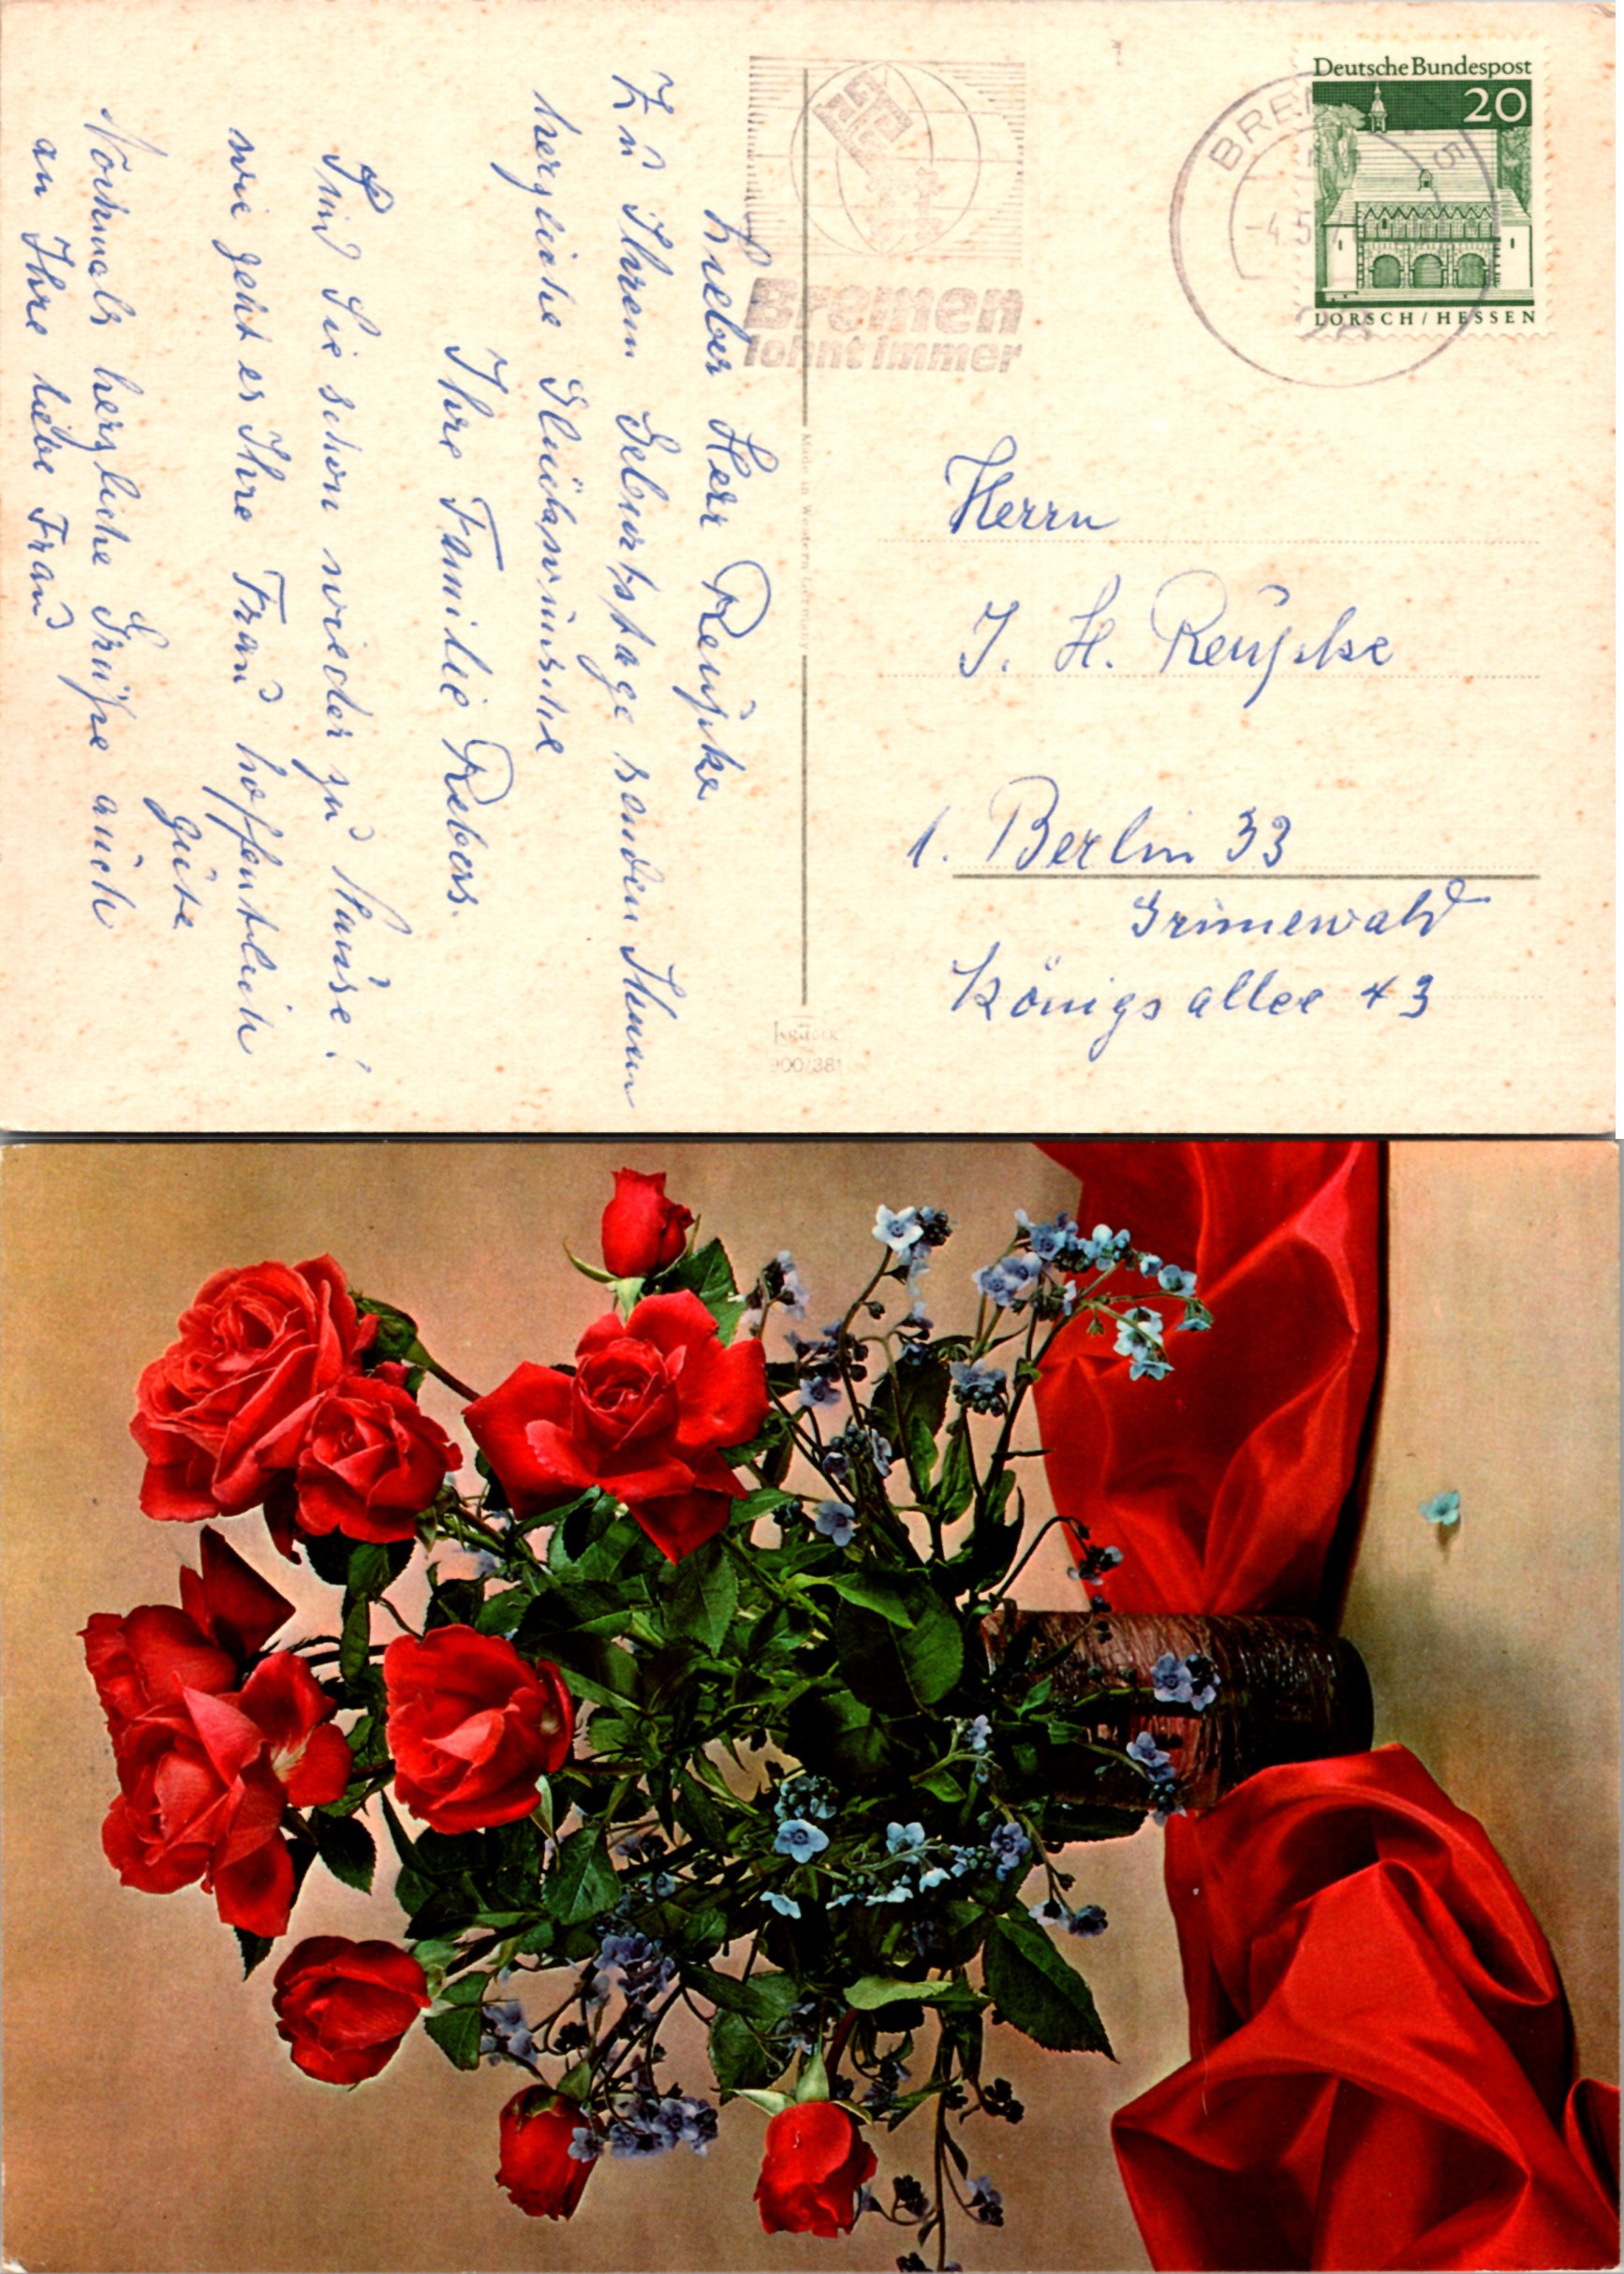 Lieber Herr Reupke
Zu Ihrem Geburtstage senden Ihnen
herzliche Glückwünsche
Ihre Familie Rebers.
Sind Sie schon wieder zu Hause?
wie geht es Ihre Frau hoffentlich
gute
Nochmals herzliche Grüße auch
an Ihre liebe Frau
Bremen
lohnt immer
BREMEN 5
-4.5.
Deutsche Bundespost
20
LORSCH / HESSEN
Made in Western Germany
Herrn
J. H. Reupke
1. Berlin 33
Grunewald
Königsallee 43
KRÜGER
900/381